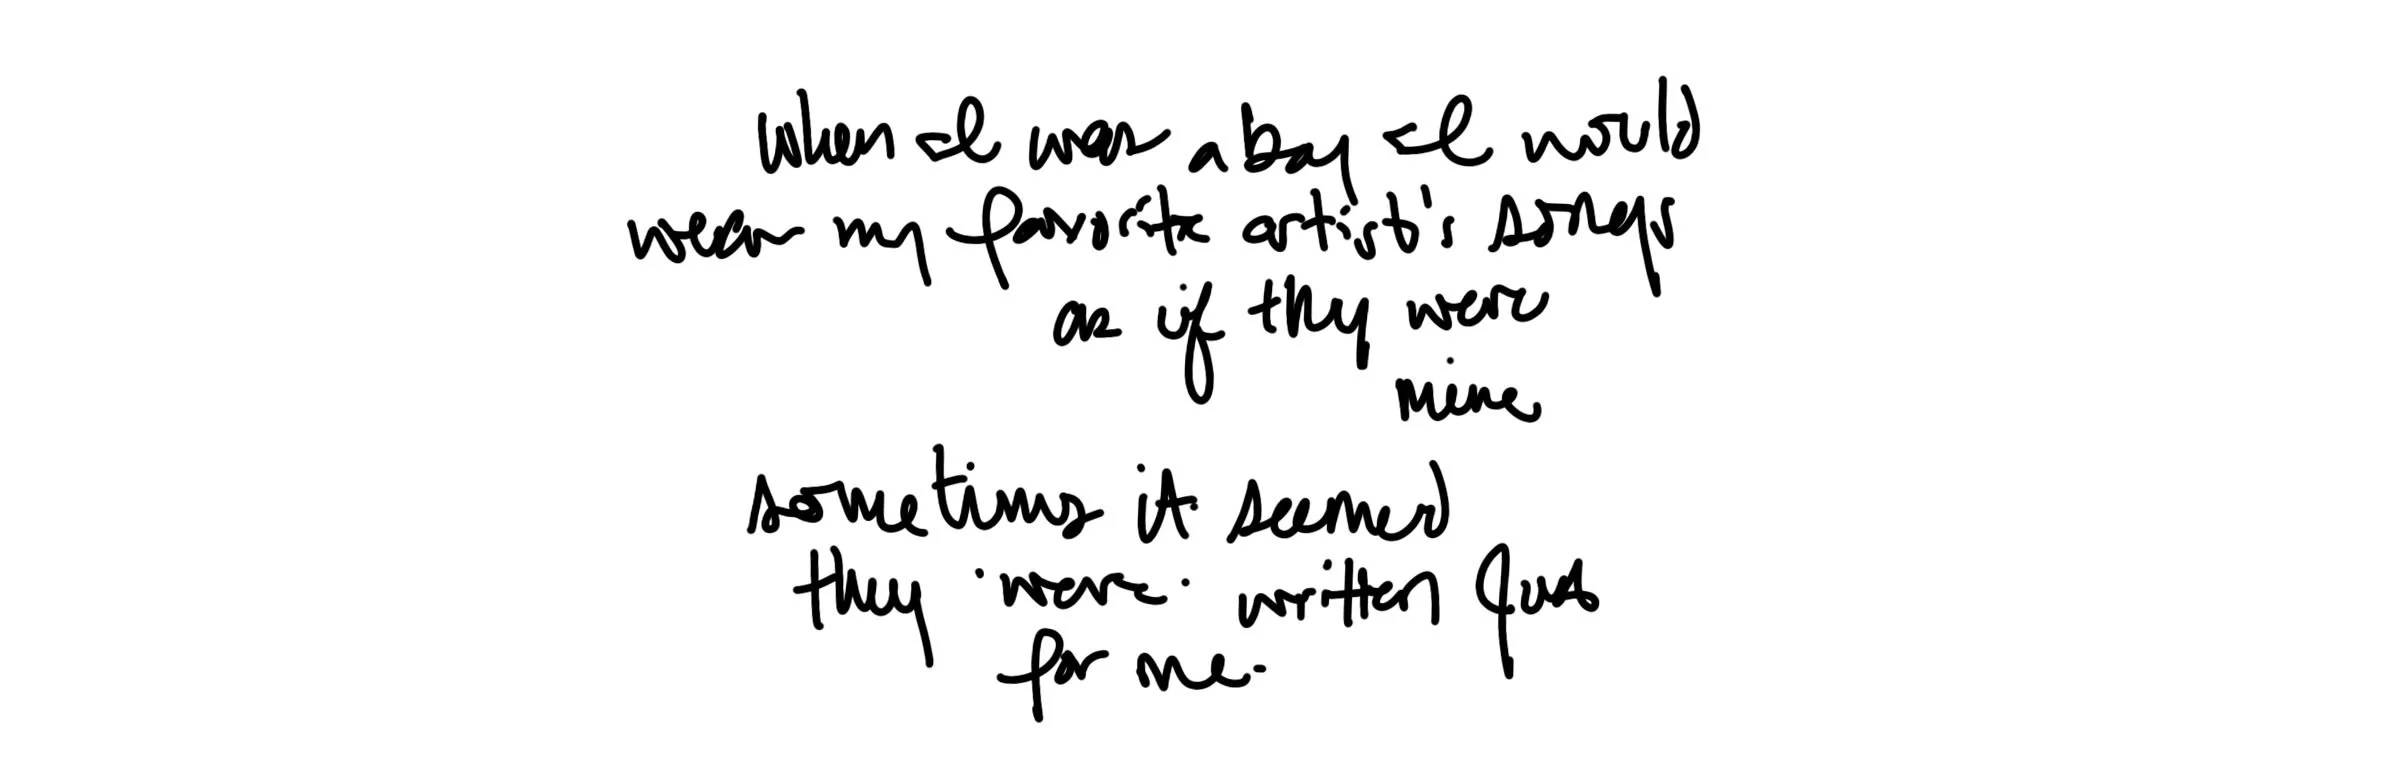 When I was a boy I would
wear my favorite artist's songs
as if they were
mine
sometimes it seemed
they were written Just
for me.